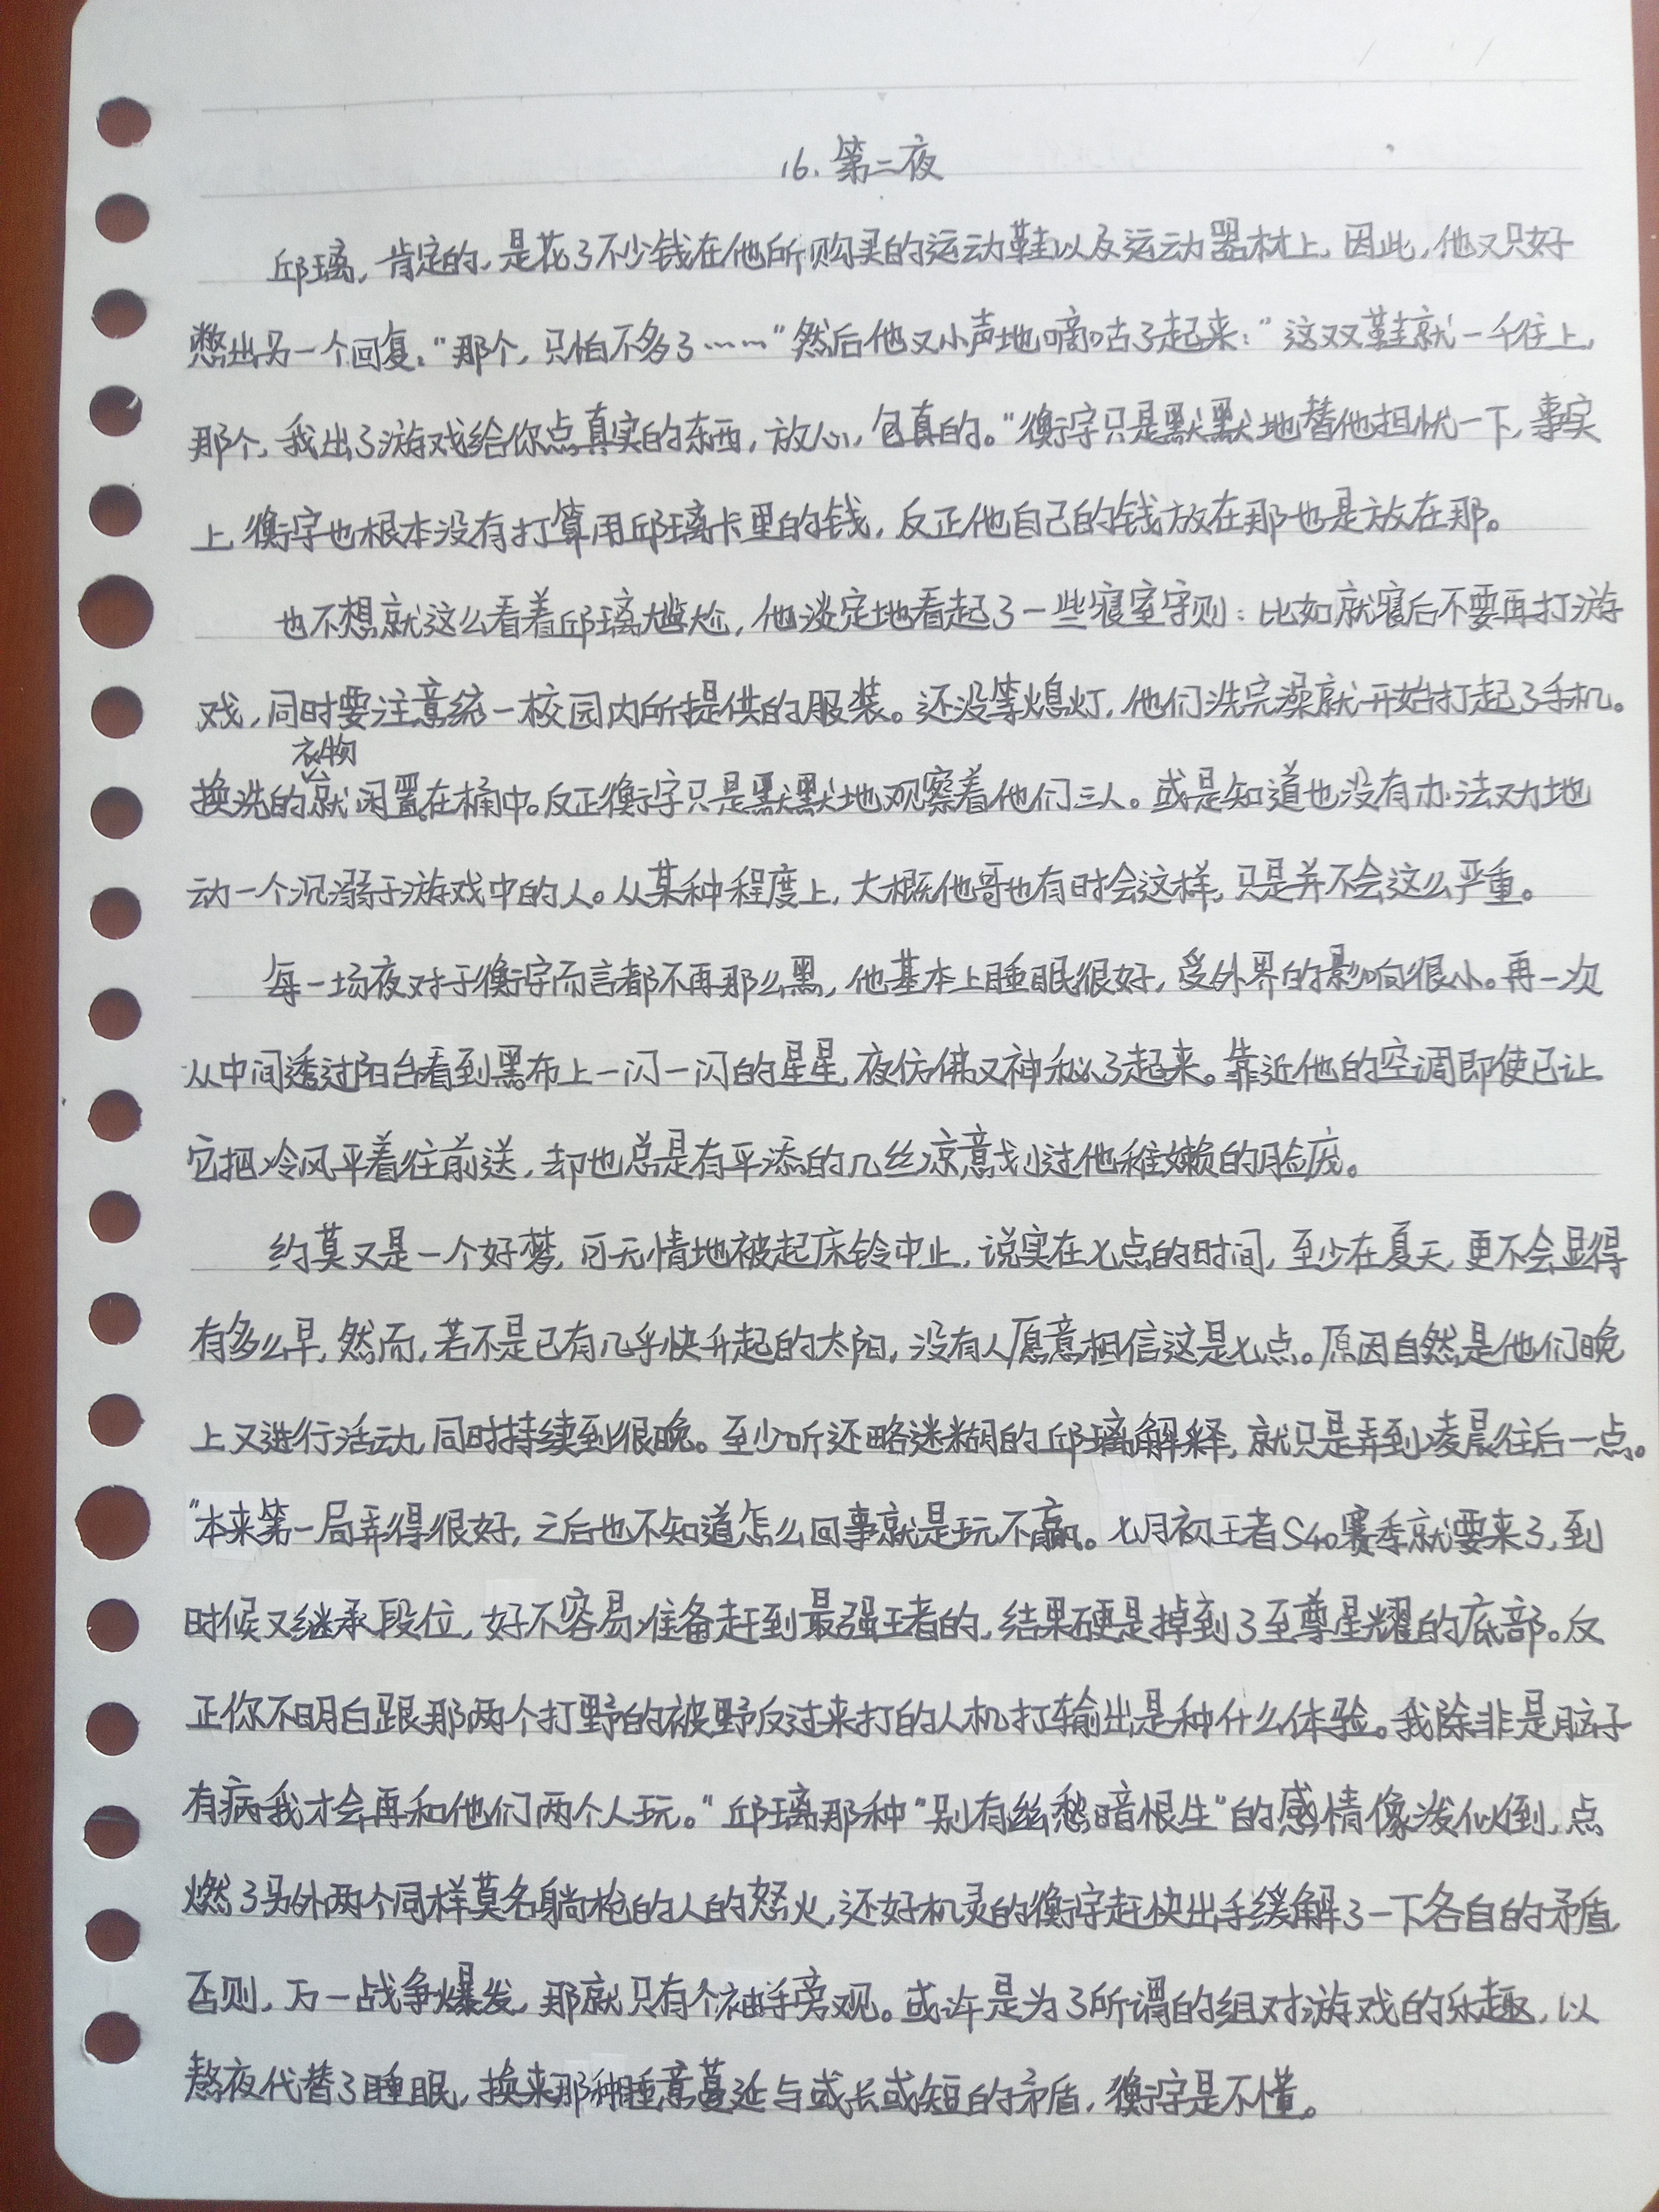 16. 第二夜
邱璃，肯定的，是花了不少钱在他所购买的运动鞋以及运动器材上，因此，他又只好
憋出另一个回复：“那个，只怕不多了……”然后他又小声地嘀咕了起来：“这双鞋就一千往上，
那个，我出了游戏给你点真实的东西，放心，包真的。”衡字只是默默地替他担忧一下，事实
上，衡字也根本没有打算用邱璃卡里的钱，反正他自己的钱放在那也是放在那。
也不想就这么看着邱璃尴尬，他淡定地看起了一些寝室守则：比如就寝后不要再打游
戏，同时要注意统一校园内所提供的服装。还没等熄灯，他们洗完澡就开始打起了手机。
换洗的衣物就闲置在桶中。反正衡字只是默默地观察着他们三人。或是知道也没有办法劝地
动一个沉溺于游戏中的人。从某种程度上，大概他哥也有时会这样，只是并不会这么严重。
每一场夜对于衡字而言都不再那么黑，他基本上睡眠很好，受外界的影响很小。再一次
从中间透过阳台看到黑布上一闪一闪的星星，夜仿佛又神秘了起来。靠近他的空调即使已让
它把冷风平着往前送，却也总是有平添的几丝凉意划过他稚嫩的脸庞。
约莫又是一个好梦，可无情地被起床铃中止，说实在七点的时间，至少在夏天，更不会显得
有多么早，然而，若不是已有几乎快升起的太阳，没有人愿意相信这是七点。原因自然是他们晚
上又进行活动，同时持续到很晚。至少听还略迷糊的邱璃解释，就只是弄到凌晨往后一点。
“本来第一局弄得很好，之后也不知道怎么回事就是玩不赢。七月初王者S40赛季就要来了，到
时候又继承段位，好不容易准备赶到最强王者的，结果硬是掉到了至尊星耀的底部。反
正你不明白跟那两个打野的被野反过来打的人机打输出是种什么体验。我除非是脑子
有病我才会再和他们两个人玩。”邱璃那种“别有幽愁暗恨生”的感情像泼似倒，点
燃了另外两个同样莫名躺枪的人的怒火，还好机灵的衡字赶快出手缓解了一下各自的矛盾，
否则，万一战争爆发，那就只有个袖手旁观。或许是为了所谓的组对游戏的乐趣，以
熬夜代替了睡眠，换来那种睡意蔓延与或长或短的矛盾，衡字是不懂。